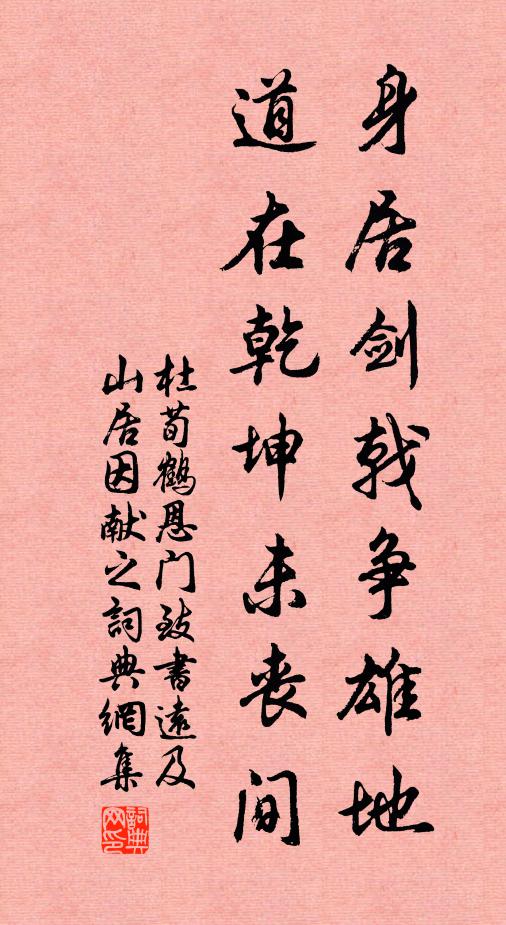 身居剑戟争雄地
道在乾坤未丧间
杜荀鹤恩门致书遠及
山居因献之詞典網集
詞典网印